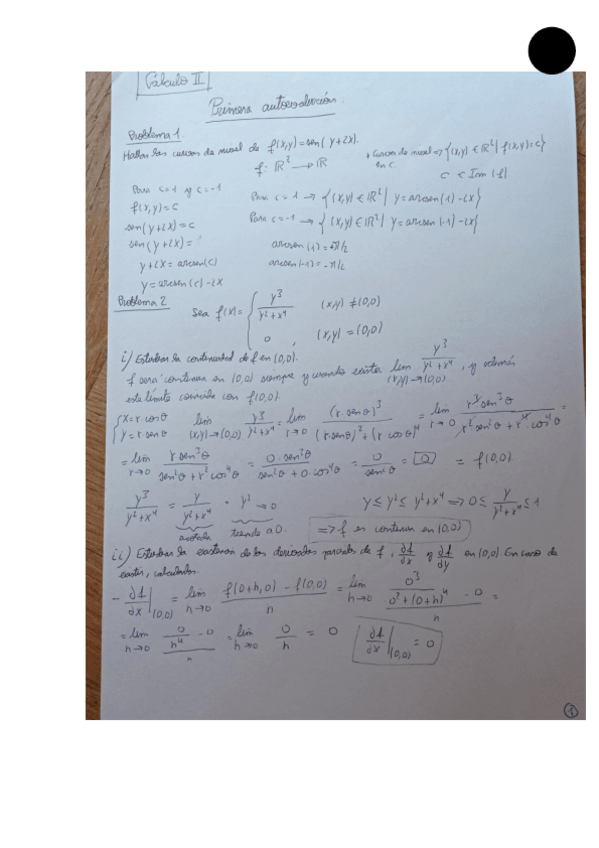 Cálculo II
Primera autoevaluación.
Problema 1.
Hallar las curvas de nivel de f(x,y)=sen(y+2x).
f: ℝ² → ℝ
* Curvas de nivel => {(x,y) ∈ ℝ² | f(x,y)=c}
en c.
c ∈ Im(f)
Para c=1 y c=-1
f(x,y)=c
sen(y+2x)=c
sen(y+2x)=
y+2x = arcsen(c)
y = arcsen(c) -2x
Para c=1 → {(x,y) ∈ ℝ² | y=arcsen(1)-2x}
Para c=-1 → {(x,y) ∈ ℝ² | y=arcsen(-1)-2x}
arcsen(1)=π/2
arcsen(-1)=-π/2
Problema 2
Sea f(x)= { y³/(y²+x⁴) (x,y) ≠(0,0)
0 , (x,y) =(0,0)
i) Estudiar la continuidad de f en (0,0).
f será continua en (0,0) siempre y cuando exista lim (x,y)→(0,0) y³/(y²+x⁴), y además
este límite coincida con f(0,0).
{ x=r cosθ
y=r senθ
lim (x,y)→(0,0) y³/(y²+x⁴) = lim r→0 (r senθ)³/((r senθ)²+(r cosθ)⁴) = lim r→0 r³sen³θ/(r²sen²θ + r⁴cos⁴θ) =
= lim r→0 r sen³θ/(sen²θ + r²cos⁴θ) = 0·sen³θ/(sen²θ + 0·cos⁴θ) = 0/sen²θ = 0 = f(0,0)
y³/(y²+x⁴) = y/(y²+x⁴) · y² → 0
acotada tiende a 0.
y ≤ y² ≤ y²+x⁴ => 0 ≤ y/(y²+x⁴) ≤ 1
=> f es continua en (0,0)
ii) Estudiar la existencia de las derivadas parciales de f, ∂f/∂x y ∂f/∂y en (0,0). En caso de
existir, calcularlas.
- ∂f/∂x|(0,0) = lim h→0 (f(0+h,0) - f(0,0))/h = lim h→0 (0³/(0²+(0+h)⁴) - 0)/h =
= lim h→0 (0/h⁴ - 0)/h = lim h→0 0/h = 0
∂f/∂x|(0,0) = 0
1